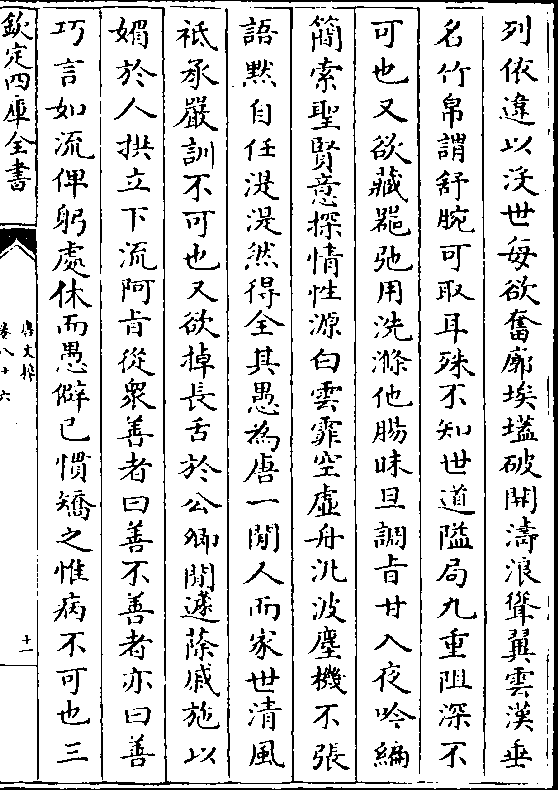 列依違以沒世每欲奮廓埃壒破開濤浪聳翼雲漢垂
名竹帛謂舒腕可取耳殊不知世道隘局九重阻深不
可也又欲藏器弛用洗滌他腸昧旦調旨甘入夜吟編
簡索聖賢意探情性源白雲霏空虛舟汎波塵機不張
語黙自任湜湜然得全其愚為唐一閒人而家世清風
祗承嚴訓不可也又欲掉長舌於公卿閒蘧蒢戚施以
媚於人拱立下流阿旨從衆善者曰善不善者亦曰善
巧言如流俾躬處休而愚僻已慣矯之惟病不可也三
欽定四庫全書
唐文粹
卷八十六
十一